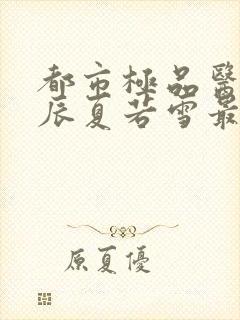 都市極品醫
辰夏若雪最
原夏優